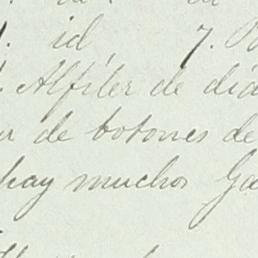 id, 7.
Alfiler de dia
de botones de
hay muchos Ga